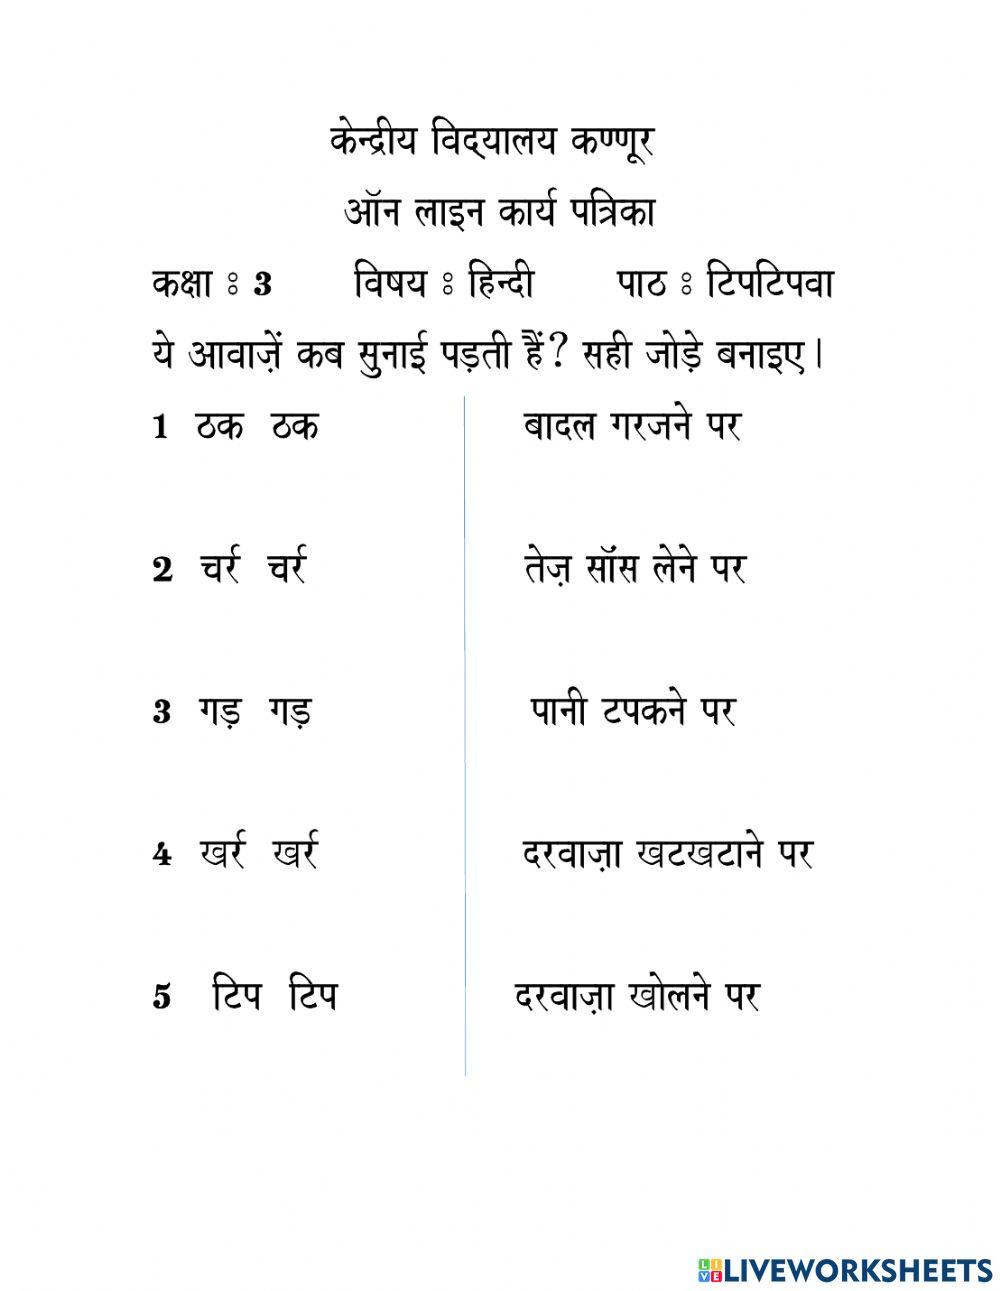 केन्द्रीय विद्यालय कण्णूर
ऑन लाइन कार्य पत्रिका
कक्षा : 3 विषय : हिन्दी पाठ : टिपटिपवा
ये आवाज़ें कब सुनाई पड़ती हैं? सही जोड़े बनाइए।
1 ठक ठक बादल गरजने पर
2 चर्र चर्र तेज़ सॉंस लेने पर
3 गड़ गड़ पानी टपकने पर
4 खर्र खर्र दरवाज़ा खटखटाने पर
5 टिप टिप दरवाज़ा खोलने पर
LIVE LIVEWORKSHEETS